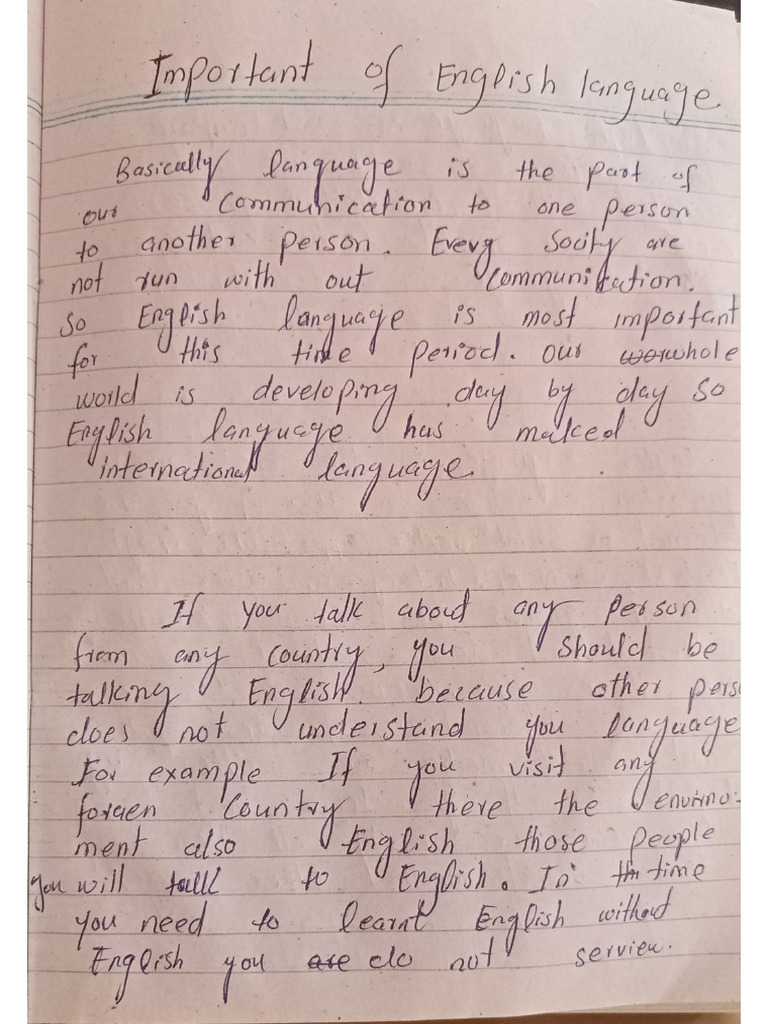 Important of English language
Basically language is the part of
our communication to one person
to another person. Every Socity are
not run with out communication.
So English language is most important
for this time period. our whole
world is developing day by day so
English language has maked
international language.
If you talk about any person
from any country, you should be
talking English. because other perso
does not understand you language
For example If you visit any
forgen country there the enviro-
ment also English those people
you will talk to English. In time
you need to learnt English without
English you do not serview.